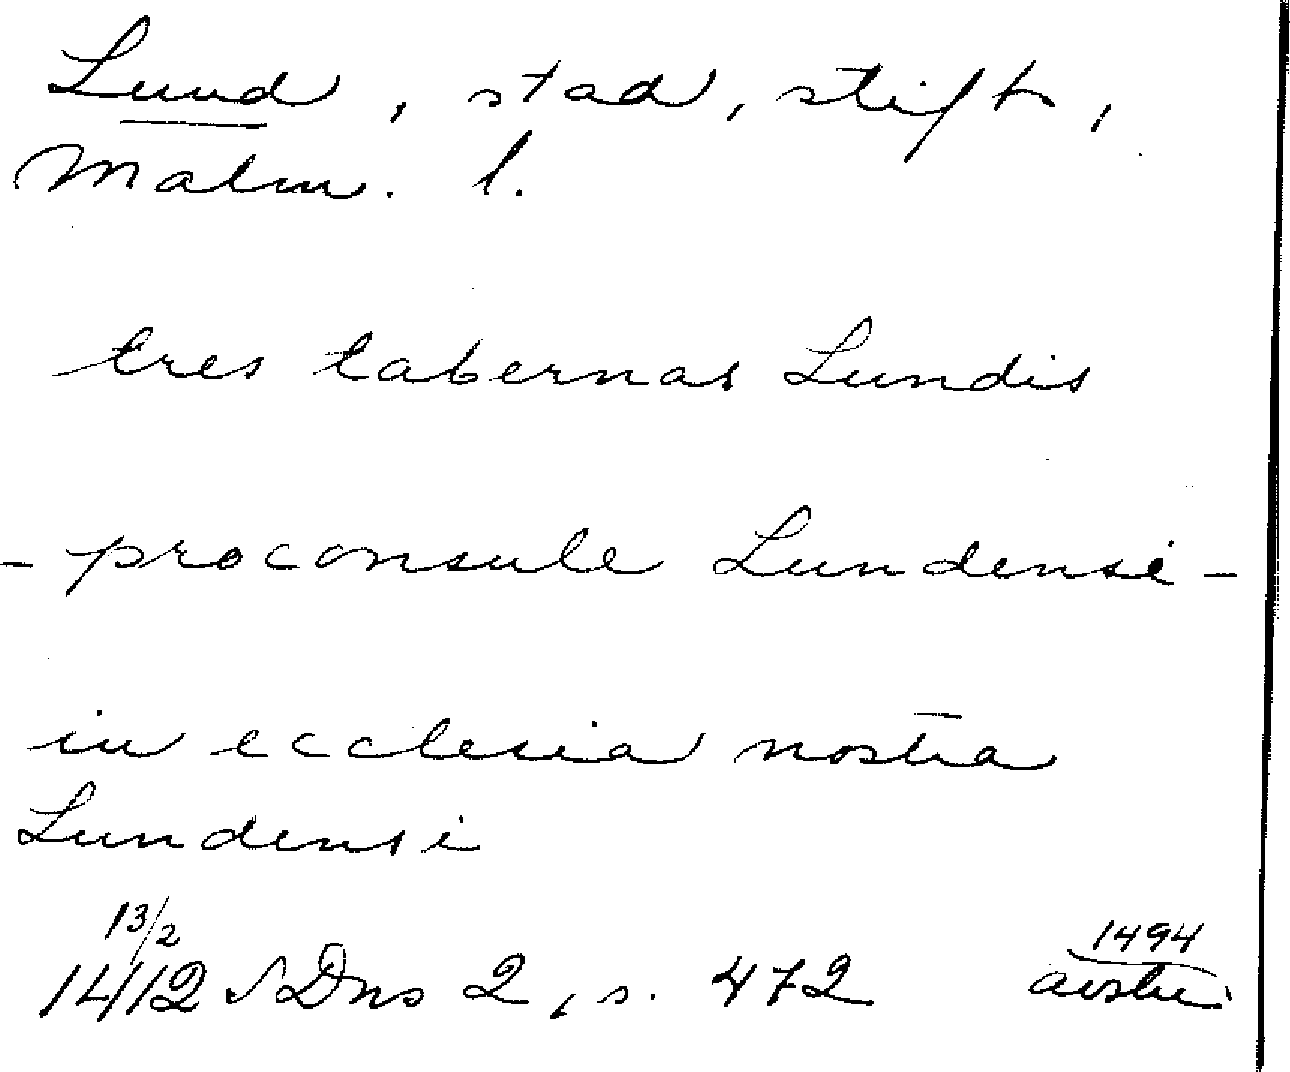 Lund, stad, stift,
Malm. l.
tres tabernas Lundis
- proconsule Lundensi -
in ecclesia nostra
Lundensi
13/2
1412 SDns 2, s. 472
1494
avskr.